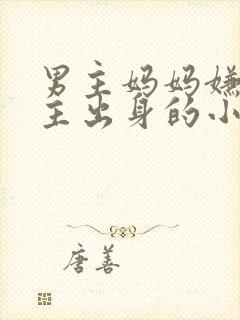 男主妈妈嫌
主出身的小
唐善